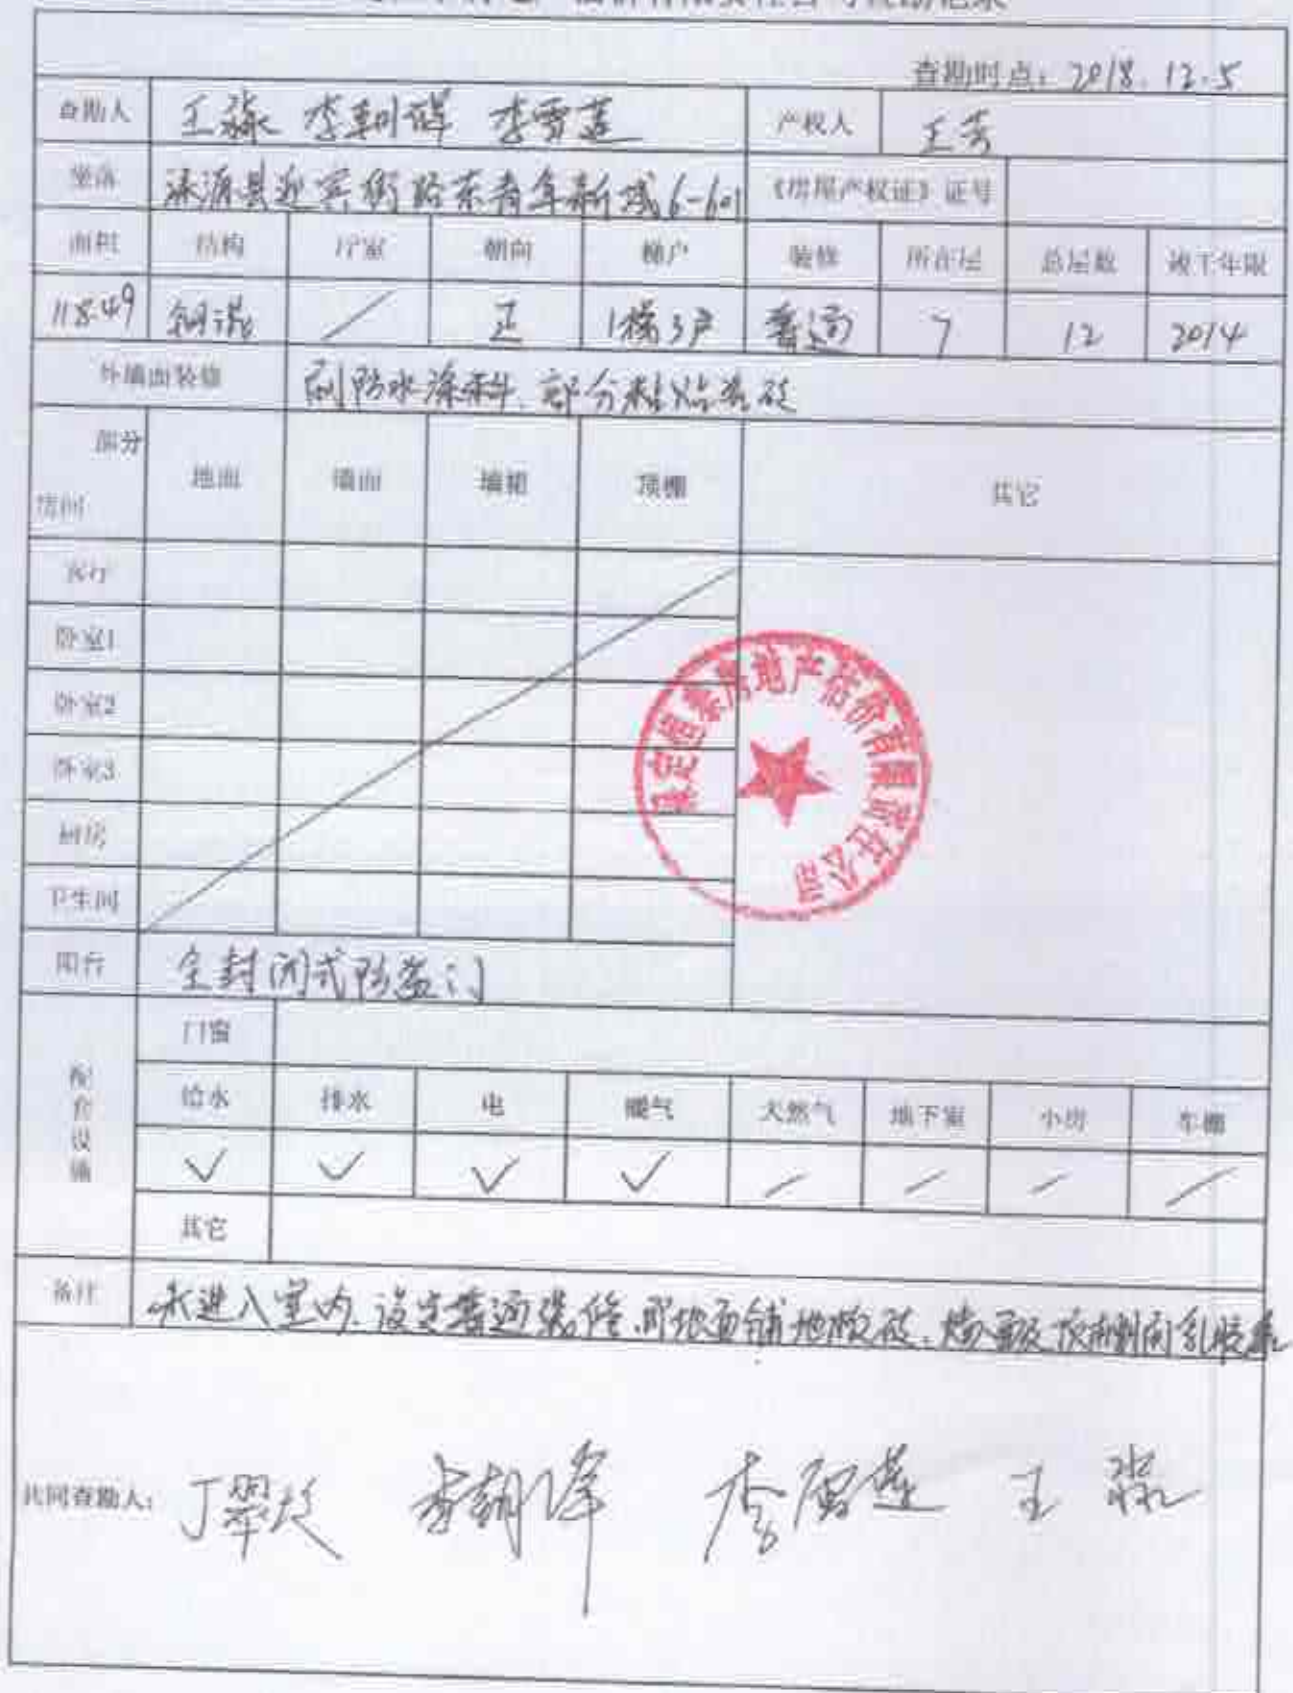 查勘时点：2018.12.5
查勘人 王淼 李朝辉 李雪莲 产权人 王芳
坐落 涞源县迎宾街路东青年新城6-601 《房屋产权证》证号
面积 结构 厅室 朝向 梯户 装修 所在层 总层数 竣工年限
118.49 钢混 / 正 1梯3户 普通 7 12 2014
外墙面装修 刷防水涂料、部分粘贴瓷砖
部分
房间 地面 墙面 墙裙 顶棚 其它
客厅
卧室1
卧室2
卧室3
厨房
卫生间
保定恒泰房地产估价有限责任公司
阳台 全封闭式防盗门
配套设施
门窗
给水 排水 电 暖气 天然气 地下室 小房 车棚
✓ ✓ ✓ ✓ / / / /
其它
备注 未进入室内,设定普通装修,即地面铺地板砖、墙面及顶棚刷乳胶漆
共同查勘人： 李雪莲 王淼